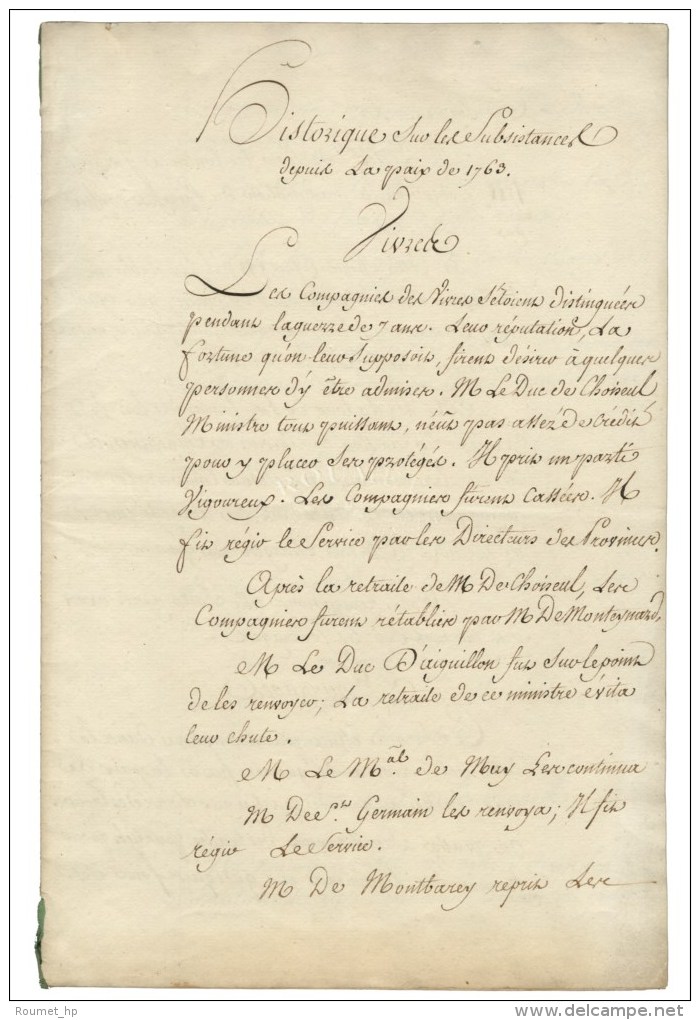 Historique sur les Subsistances
depuis La paix de 1763.
Vivres
Les Compagnies des Vivres s'étoient distinguées
pendant la guerre de 7 ans. Leur réputation, La
fortune qu'on leur Supposoit, firent désirer à quelques
personnes d'y être admises. M Le Duc de Choiseul
Ministre tout puissant, n'eût pas assez de crédit
pour y placer ses protégés. Il prit un parti
Vigoureux. Les Compagnies furent cassées. Il
fit régir le Service par les Directeurs des Provinces.
Après la retraite de M De Choiseul, Les
Compagnies furent rétablies par M De Monteynard,
M Le Duc D'aiguillon fut sur le point
de les renvoyer; La retraite de ce ministre évita
leur chute.
M Le Mãal de Muy Les continua
M De St Germain les renvoya; Il fit
régir Le Service.
M De Montbarey reprit Les
Roumet_hp
www.delcampe.net